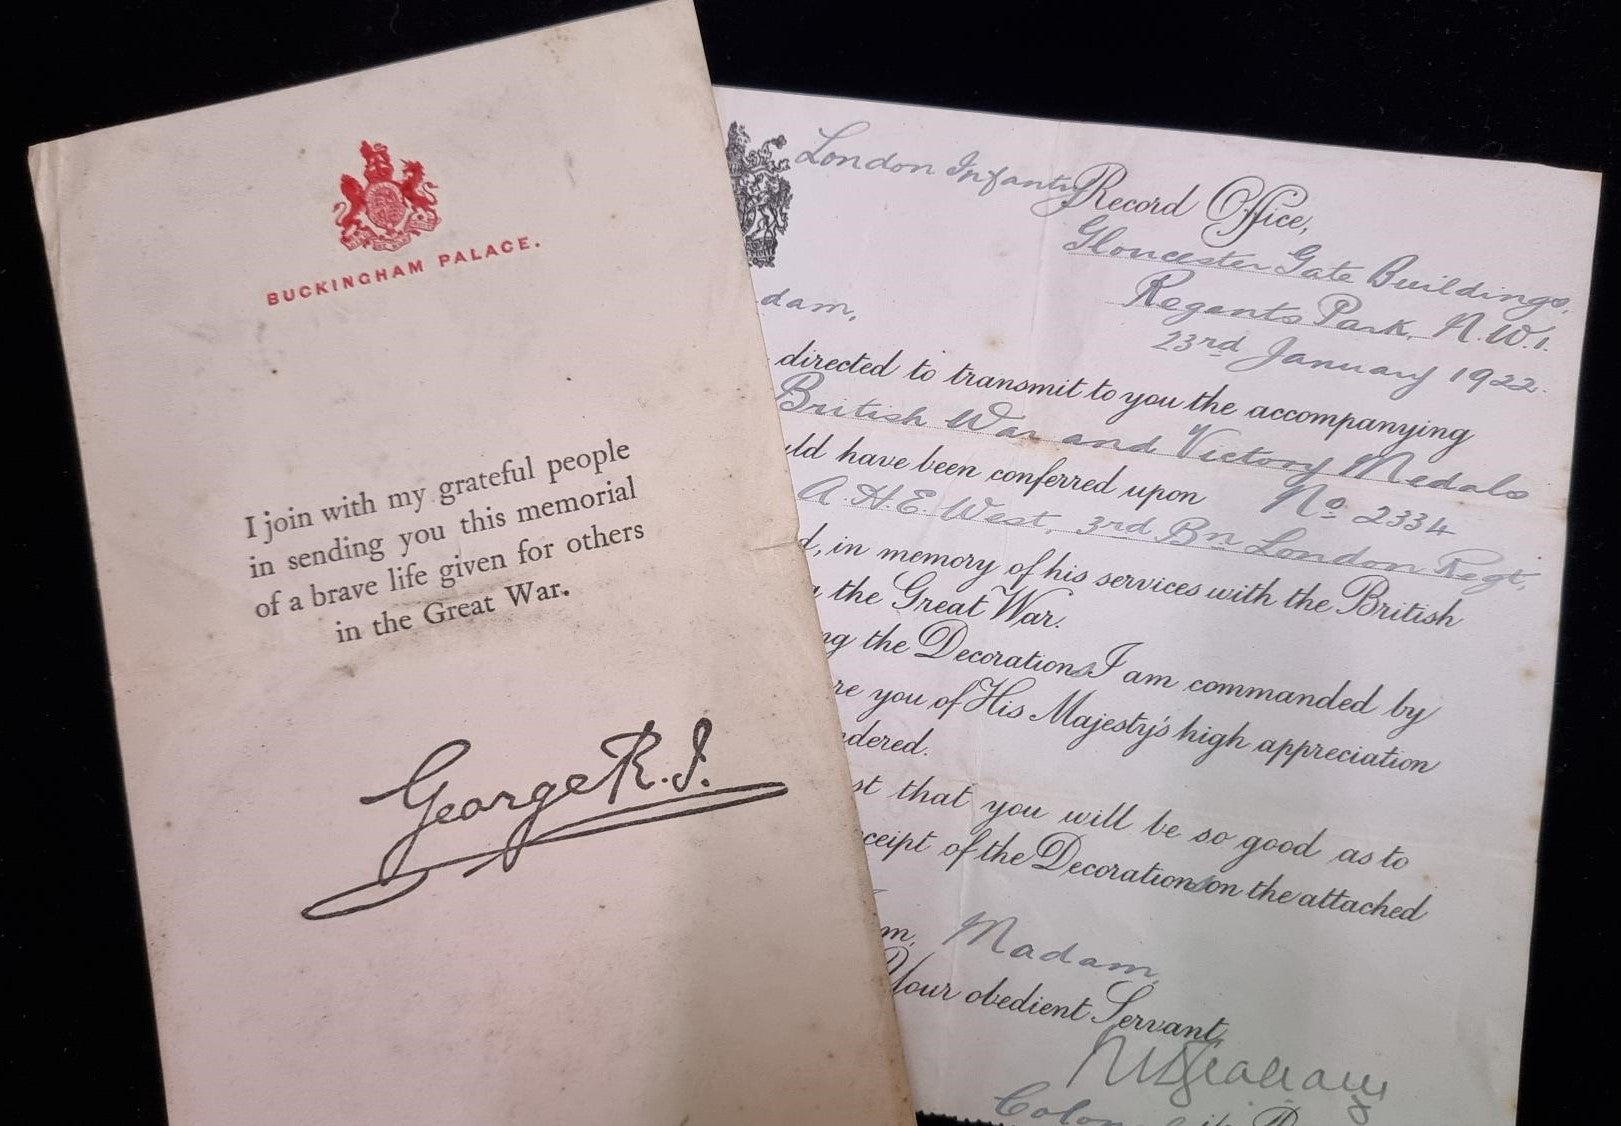 BUCKINGHAM PALACE.
I join with my grateful people
in sending you this memorial
of a brave life given for others
in the Great War.
George R.I.
London Infantry Record Office,
Gloucester Gate Buildings,
Regents Park, N.W.1.
23rd January 1922.
dam,
directed to transmit to you the accompanying
British War and Victory Medals
uld have been conferred upon No 2334
A. H. E. West, 3rd Bn London Regt,
d, in memory of his services with the British
the Great War.
ng the Decorations I am commanded by
re you of His Majesty's high appreciation
ndered.
st that you will be so good as to
ceipt of the Decorations on the attached
m, Madam,
Your obedient Servant,